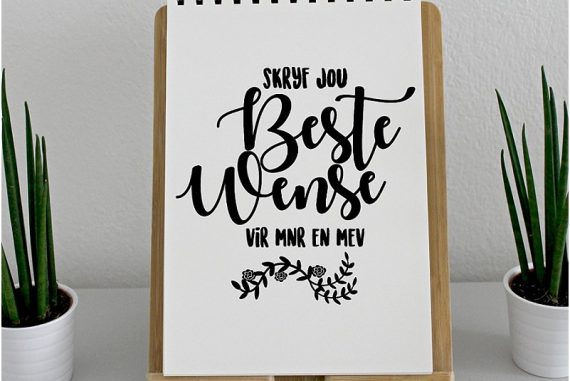 SKRYF JOU
Beste
Wense
VIR MNR EN MEV